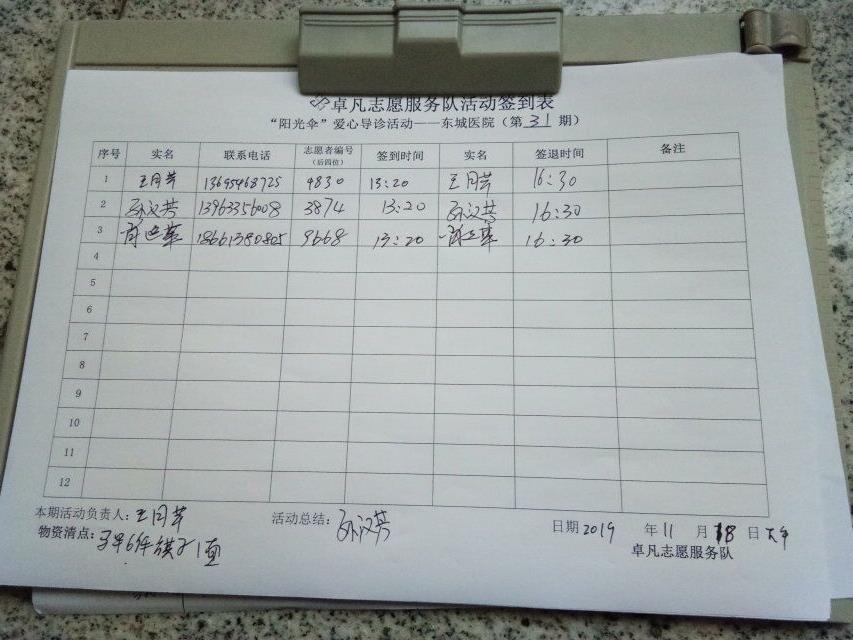 卓凡志愿服务队活动签到表
“阳光伞”爱心导诊活动——东城医院（第 31 期）
序号 实名 联系电话 志愿者编号（后四位） 签到时间 实名 签退时间 备注
1 王同芊 13695468725 9830 13:20 王同芊 16:30
2 孙汉芳 13963356008 3874 13:20 孙汉芳 16:30
3 18661380805 9668 13:20 16:30
4
5
6
7
8
9
10
11
12
本期活动负责人：王同芊 活动总结：孙汉芳 日期 2019 年 11 月 18 日 下午
物资清点：马甲6件 旗子1面 卓凡志愿服务队